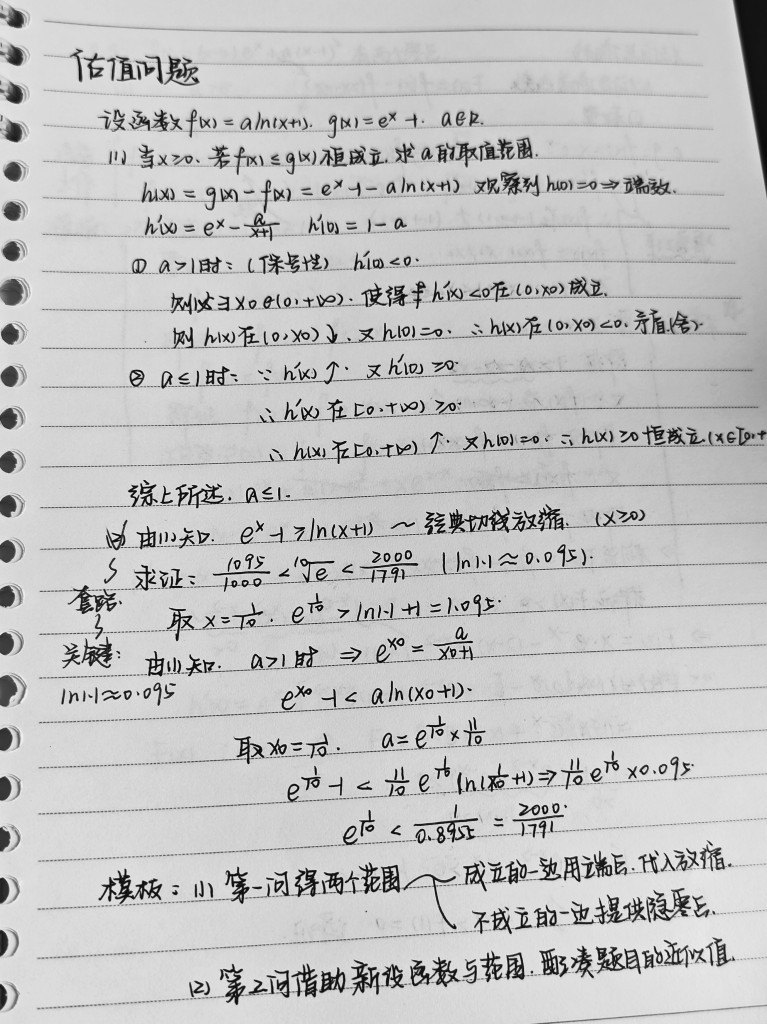 估值问题
设函数f(x)=aln(x+1). g(x)=eˣ-1. a∈R.
(1) 当x≥0. 若f(x)≤g(x)恒成立. 求a的取值范围.
h(x)=g(x)-f(x)=eˣ-1-aln(x+1) 观察到h(0)=0⇒端效.
h'(x)=eˣ-a/(x+1) h'(0)=1-a
① a>1时:(保号性) h'(0)<0.
则必∃x₀∈(0,+∞). 使得 h'(x)<0在(0,x₀)成立.
则h(x)在(0,x₀)↓. 又h(0)=0. ∴h(x)在(0,x₀)<0. 矛盾(舍).
② a≤1时: ∵h'(x)↑. 又h'(0)≥0.
∴h'(x)在[0,+∞)≥0.
∴h(x)在[0,+∞)↑. 又h(0)=0. ∴h(x)≥0恒成立(x∈[0,+
综上所述. a≤1.
由(1)知. eˣ-1≥ln(x+1) ~ 经典切线放缩. (x≥0)
求证: 1095/1000<¹⁰√e<2000/1791 (ln1.1≈0.095).
套路.
取x=1/10. e^(1/10)>ln1.1+1=1.095.
关键:
ln1.1≈0.095
由(1)知. a>1时 ⇒ e^(x₀)=a/(x₀+1)
e^(x₀)-1<aln(x₀+1).
取x₀=1/10. a=e^(1/10)×11/10
e^(1/10)-1<11/10 e^(1/10) ln(1/10+1)⇒11/10 e^(1/10)×0.095.
e^(1/10)<1/0.8955=2000/1791.
模板: (1) 第一问得两个范围
成立的一边用端点. 代入放缩.
不成立的一边提供隐零点.
(2) 第2问借助新设函数与范围. 配凑题目的近似值